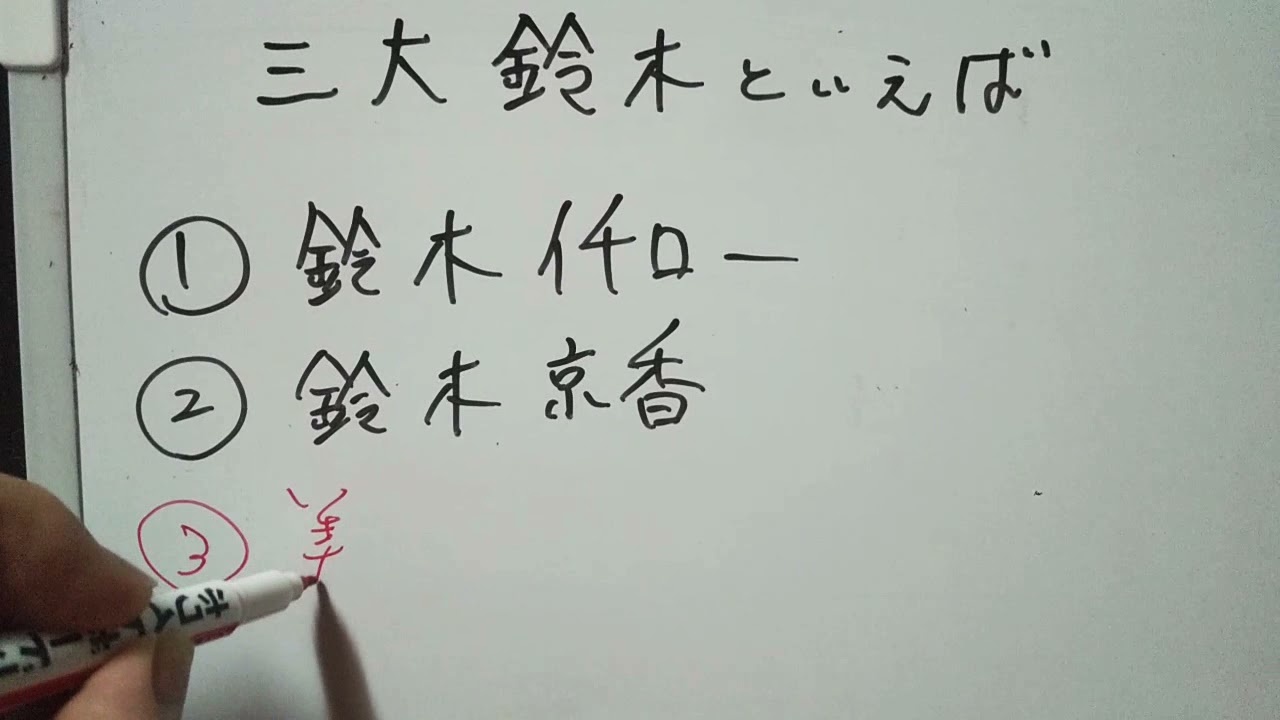 三大鈴木といえば
① 鈴木イチロー
② 鈴木京香
③
ホワイトボード